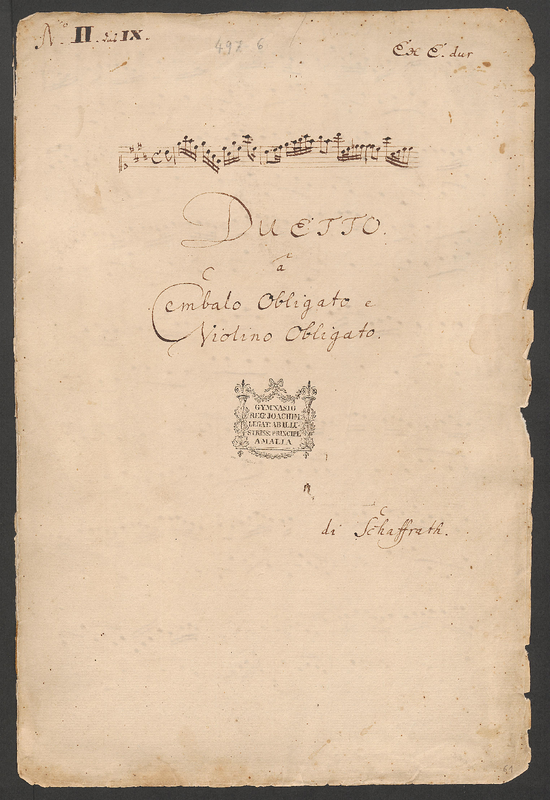 No II. IX.
497 6
Ex E. dur
DUETTO.
a
Cembalo Obligato e
Violino Obligato.
GYMNASIO
REG. JOACHIM.
LEGAT. AB ILLU-
STRISS. PRINCIPE
AMALIA
di Schaffrath.